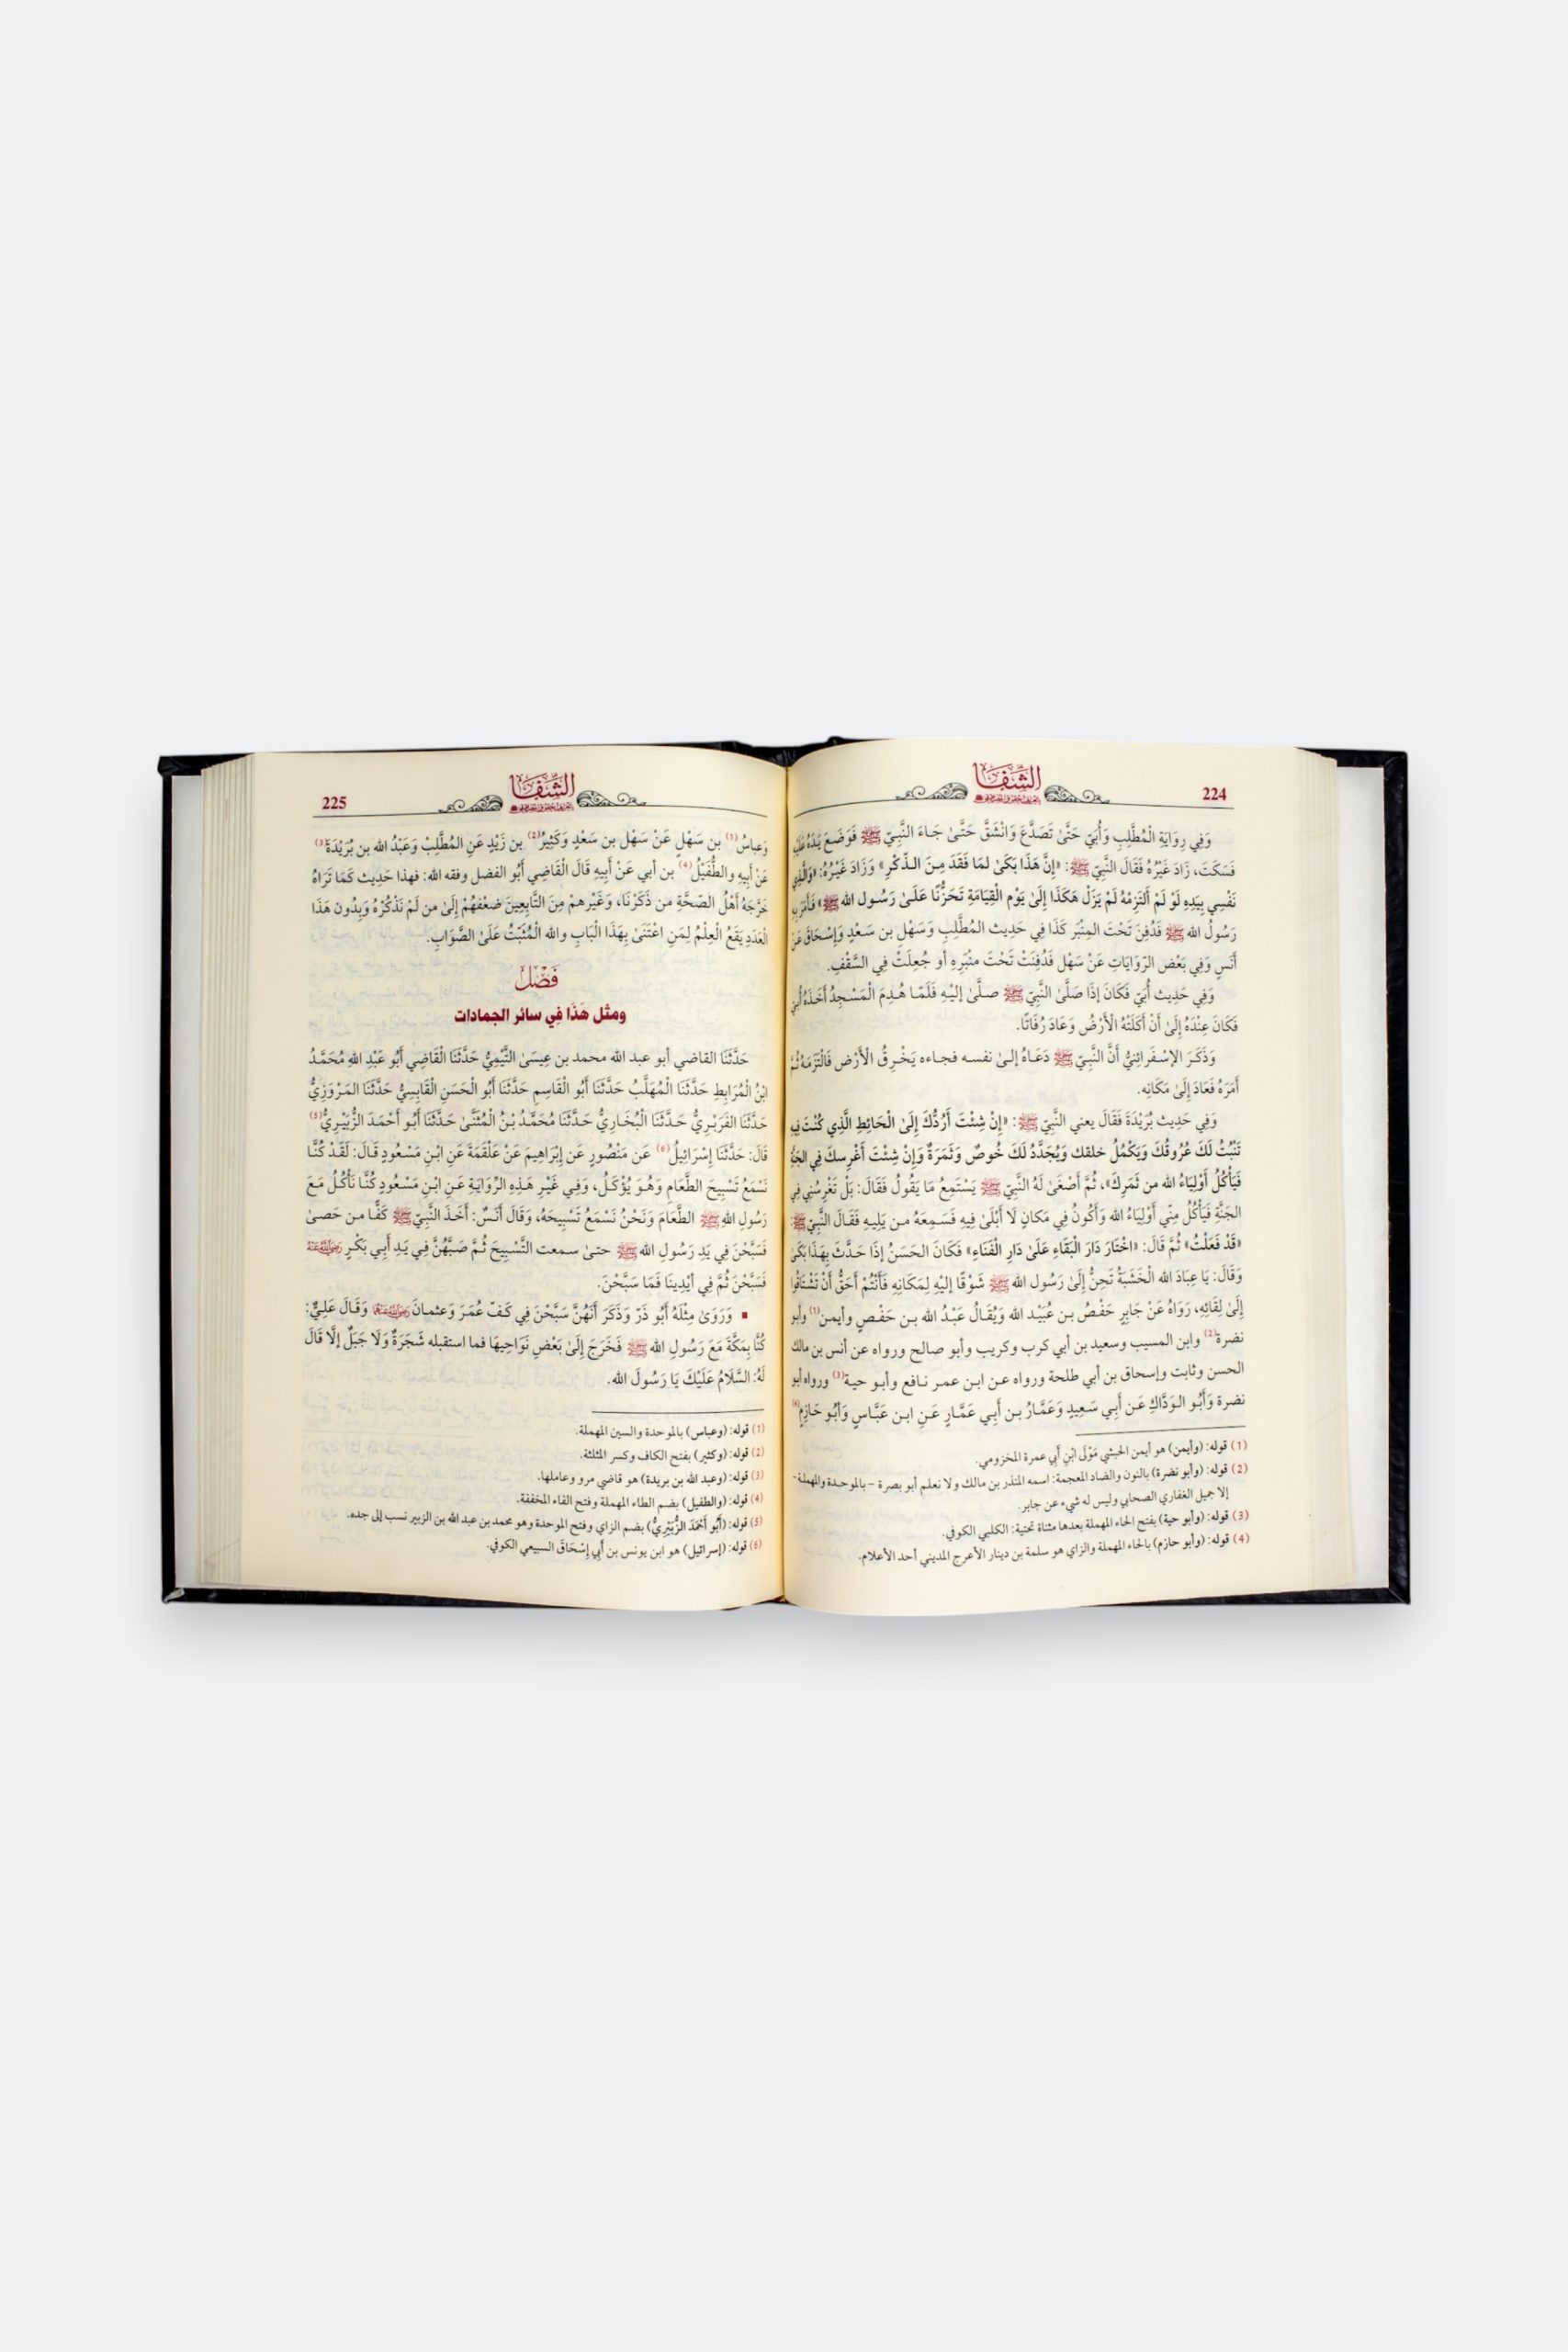 224
الشفا
وَفِي رِوَايَةِ الْمُطَّلِبِ وَأُبَيٍّ حَتَّىٰ تَصَدَّعَ وَانْشَقَّ حَتَّىٰ جَاءَ النَّبِيّ ﷺ فَوَضَعَ يَدَهُ عَلَيْهِ
فَسَكَتَ، زَادَ غَيْرُهُ فَقَالَ النَّبِيّ ﷺ: «إِنَّ هَذَا بَكَىٰ لمَا فَقَدَ مِنَ الـذّكْرِ» وَزَادَ غَيْـرُهُ: «وَالَّذِي
نَفْسِي بِيَدِهِ لَوْ لَمْ أَلتَزِمْهُ لَمْ يَزَلْ هَكَذَا إِلَىٰ يَوْمِ الْقِيَامَةِ تَحَزُّنًا عَلَـىٰ رَسُـول الله ﷺ» فَأَمَرَ بِهِ
رَسُولُ الله ﷺ فَدُفِنَ تَحْتَ المِنْبَر كَذَا فِي حَدِيث المُطَّلِبِ وَسَهْلِ بن سَـعْدٍ وَإِسْحَاقَ عَنْ
أَنَسٍ وَفِي بَعْض الرّوَايَاتِ عَنْ سَهْل فَدُفِنَتْ تَحْتَ مِنْبَرِهِ أو جُعِلَتْ فِي السَّقْفِ.
وَفِي حَدِيث أُبَيّ فَكَانَ إذَا صَلَّى النَّبِيّ ﷺ صـلَّىٰ إليْـهِ فَلَمّـا هُـدِمَ الْمَسْـجِدُ أَخَذَهُ أُبَيّ
فَكَانَ عِنْدَهُ إِلَىٰ أَنْ أكَلَتْهُ الْأَرْضُ وَعَادَ رُفَاتًا.
وَذَكَـرَ الإسْـفَرائِنِيُّ أنَّ النَّبِـيّ ﷺ دَعَـاهُ إلـىٰ نفسـه فجـاءه يَخْـرِقُ الْأَرْضَ فَالْتَزَمَهُ ثُمَّ
أَمَرَهُ فَعَادَ إِلَىٰ مَكَانِهِ.
وَفِي حَدِيثِ بُرَيْدَةَ فَقَالَ يعني النَّبِيّ ﷺ: «إِنْ شِئْتَ أَرُدُّكَ إِلَىٰ الْحَائِطِ الَّذِي كُنْتَ فِيهِ
تَنْبُتُ لَكَ عُرُوقُكَ وَيَكْمُلُ خلقك وَيُجَدَّدُ لَكَ خُوصٌ وَثَمَرَةٌ وَإِنْ شِئْتَ أَغْرِسكَ فِي الجَنَّةِ
فَيَأْكُلُ أَوْلِيَاءُ الله من ثَمَرِكَ»، ثُمَّ أَصْغَىٰ لَهُ النَّبِيّ ﷺ يَسْتَمِعُ مَا يَقُولُ فَقَالَ: بَلْ تَغْرِسُنِي فِي
الجَنَّةِ فَيَأْكُلُ مِنّي أَوْلِيَاءُ الله وَأَكُونُ فِي مَكانٍ لَا أَبْلَىٰ فِيهِ فَسَـمِعَهُ مـن يَلِيـهِ فَقَالَ النَّبِيّ ﷺ:
«قَدْ فَعَلْتُ» ثُمَّ قَالَ: «اخْتَارَ دَارَ الْبَقَاءِ عَلَىٰ دَارِ الْفَنَاءِ» فَكَانَ الحَسَنُ إِذَا حَدَّثَ بِهَذَا بَكَىٰ
وَقَالَ: يَا عِبَادَ الله الْخَشَبَةُ تَحِنُّ إِلَىٰ رَسُول الله ﷺ شَوْقًا إليْهِ لِمَكَانِهِ فَأَنْتُمْ أَحَقُّ أَنْ تَشْتَاقُوا
إِلَىٰ لِقَائِهِ، رَوَاهُ عَنْ جَابِرٍ حَفْـصُ بـن عُبَيْـد الله وَيُقَـالُ عَبْـدُ الله بـن حَفْـصٍ وأيمـن(1) وأبو
نضرة(2) وابن المسيب وسعيد بن أبي كرب وكريب وأبو صالح ورواه عن أنس بن مالك
الحسن وثابت وإسحاق بن أبي طلحة ورواه عـن ابـن عمـر نـافع وأبـو حيـة(3) ورواه أبو
نضرة وَأَبُو الوَدَّاكِ عَن أَبِي سَعِيدٍ وَعَمَّارُ بـن أَبِـي عَمَّـارٍ عَـنِ ابـن عَبَّـاسٍ وَأَبُو حَازِمٍ(4)
(1) قوله: (وأيمن) هو أيمن الحبشي مَوْلَى ابْنِ أَبِي عمرة المخزومي.
(2) قوله: (وأبو نضرة) بالنون والضاد المعجمة: اسمه المنذر بن مالك ولا نعلم أبو بصرة - بالموحدة والمهملة-
إلا جميل الغفاري الصحابي وليس له شيء عن جابر.
(3) قوله: (وأبو حية) بفتح الحاء المهملة بعدها مثناة تحتية: الكلبي الكوفي.
(4) قوله: (وأبو حازم) بالحاء المهملة والزاي هو سلمة بن دينار الأعرج المديني أحد الأعلام.
225
الشفا
وَعباسُ(1) بن سَهْلٍ عَنْ سَهْل بن سَعْدٍ وَكَثِيرُ(2) بن زَيْدٍ عَنِ المُطَّلِبْ وَعَبْدُ الله بن بُرَيْدَةَ(3)
عَنْ أَبِيهِ والطُّفَيْلُ(4) بن أبي عَنْ أَبِيهِ قَالَ الْقَاضِي أَبُو الفضل وفقه الله: فهذا حَدِيث كَمَا تَرَاهُ
خَرَّجَهُ أَهْلُ الصّحَّةِ من ذَكَرْنَا، وَغَيْرهمْ مِنَ التَّابِعِينَ ضعْفهُمْ إِلَىٰ من لَمْ نَذْكُرْهُ وَبِدُون هَذَا
الْعَدَدِ يَقَعُ الْعِلْمُ لِمَنِ اعْتَنَىٰ بِهَذَا الْبَابِ والله الْمُثَبِّتُ عَلَىٰ الصَّوَابِ.
فَصْلٌ
ومثل هَذَا فِي سائر الجمادات
حَدَّثَنَا القاضي أبو عبد الله محمد بن عِيسَىٰ التَّيْمِيُّ حَدَّثَنَا الْقَاضِي أَبُو عَبْدِ اللهِ مُحَمَّـدُ
ابْنُ الْمُرَابِطِ حَدَّثَنَا الْمُهَلَّبُ حَدَّثَنَا أَبُو الْقَاسِمِ حَدَّثَنَا أَبُو الْحَسَنِ الْقَابِسِيُّ حَدَّثَنَا المَـرْوَزِيُّ
حَدَّثَنَا الفَرَبْـرِيُّ حَـدَّثَنَا الْبُخَـارِيُّ حَـدَّثَنَا مُحَمَّـدُ بْـنُ الْمُثَنَّىٰ حَدَّثَنَا أَبُـو أَحْمَـدَ الزُّبَيْـرِيُّ(5)
قَالَ: حَدَّثَنَا إِسْرَائِيلُ(6) عَن مَنْصُورٍ عَن إِبْرَاهِيمَ عَنْ عَلْقَمَةَ عَنِ ابْنِ مَسْعُودٍ قَـالَ: لَقَـدْ كُنَّـا
نَسْمَعُ تَسْبِيحَ الطَّعَامِ وَهُـوَ يُؤْكَـلُ، وَفِـي غَيْـرِ هَـذِهِ الرِّوَايَـةِ عَـنِ ابْـنِ مَسْـعُودٍ كُنَّـا نَأْكُـلُ مَـعَ
رَسُولِ اللهِ ﷺ الطَّعَامَ وَنَحْنُ نَسْمَعُ تَسْبِيحَهُ، وَقَالَ أَنَسٌ: أَخَـذَ النَّبِـيّ ﷺ كَفًّـا مـن حَصـىٰ
فَسَبَّحْنَ فِي يَدِ رَسُولِ الله ﷺ حتـىٰ سـمعت التَّسْـبِيحَ ثُـمَّ صَـبَّهُنَّ فِـي يَـدِ أَبِـي بَكْـرٍ رَضِيَ اللَّهُ عَنْهُ
فَسَبَّحْنَ ثُمَّ فِي أَيْدِينَا فَمَا سَبَّحْنَ.
▪ وَرَوَىٰ مِثْلَهُ أَبُو ذَرّ وَذَكَرَ أَنَّهُنَّ سَبَّحْنَ فِي كَـفّ عُمَـرَ وَعثمـانَ رَضِيَ اللَّهُ عَنْهُ وَقَـالَ عَلِـيٌّ:
كُنَّا بِمَكَّةَ مَعَ رَسُولِ الله ﷺ فَخَرَجَ إِلَىٰ بَعْضِ نَوَاحِيهَا فما استقبله شَجَرَةٌ وَلَا جَبَلٌ إِلَّا قَالَ
لَهُ: السَّلَامُ عَلَيْكَ يَا رَسُولَ الله.
(1) قوله: (وعباس) بالموحدة والسين المهملة.
(2) قوله: (وكثير) بفتح الكاف وكسر المثلثة.
(3) قوله: (وعبد الله بن بريدة) هو قاضي مرو وعاملها.
(4) قوله: (والطفيل) بضم الطاء المهملة وفتح الفاء المخففة.
(5) قوله: (أَبُو أَحْمَدَ الزُّبَيْرِيُّ) بضم الزاي وفتح الموحدة وهو محمد بن عبد الله بن الزبير نسب إلى جده.
(6) قوله: (إسرائيل) هو ابن يونس بن أَبِي إِسْحَاقَ السبيعي الكوفي.